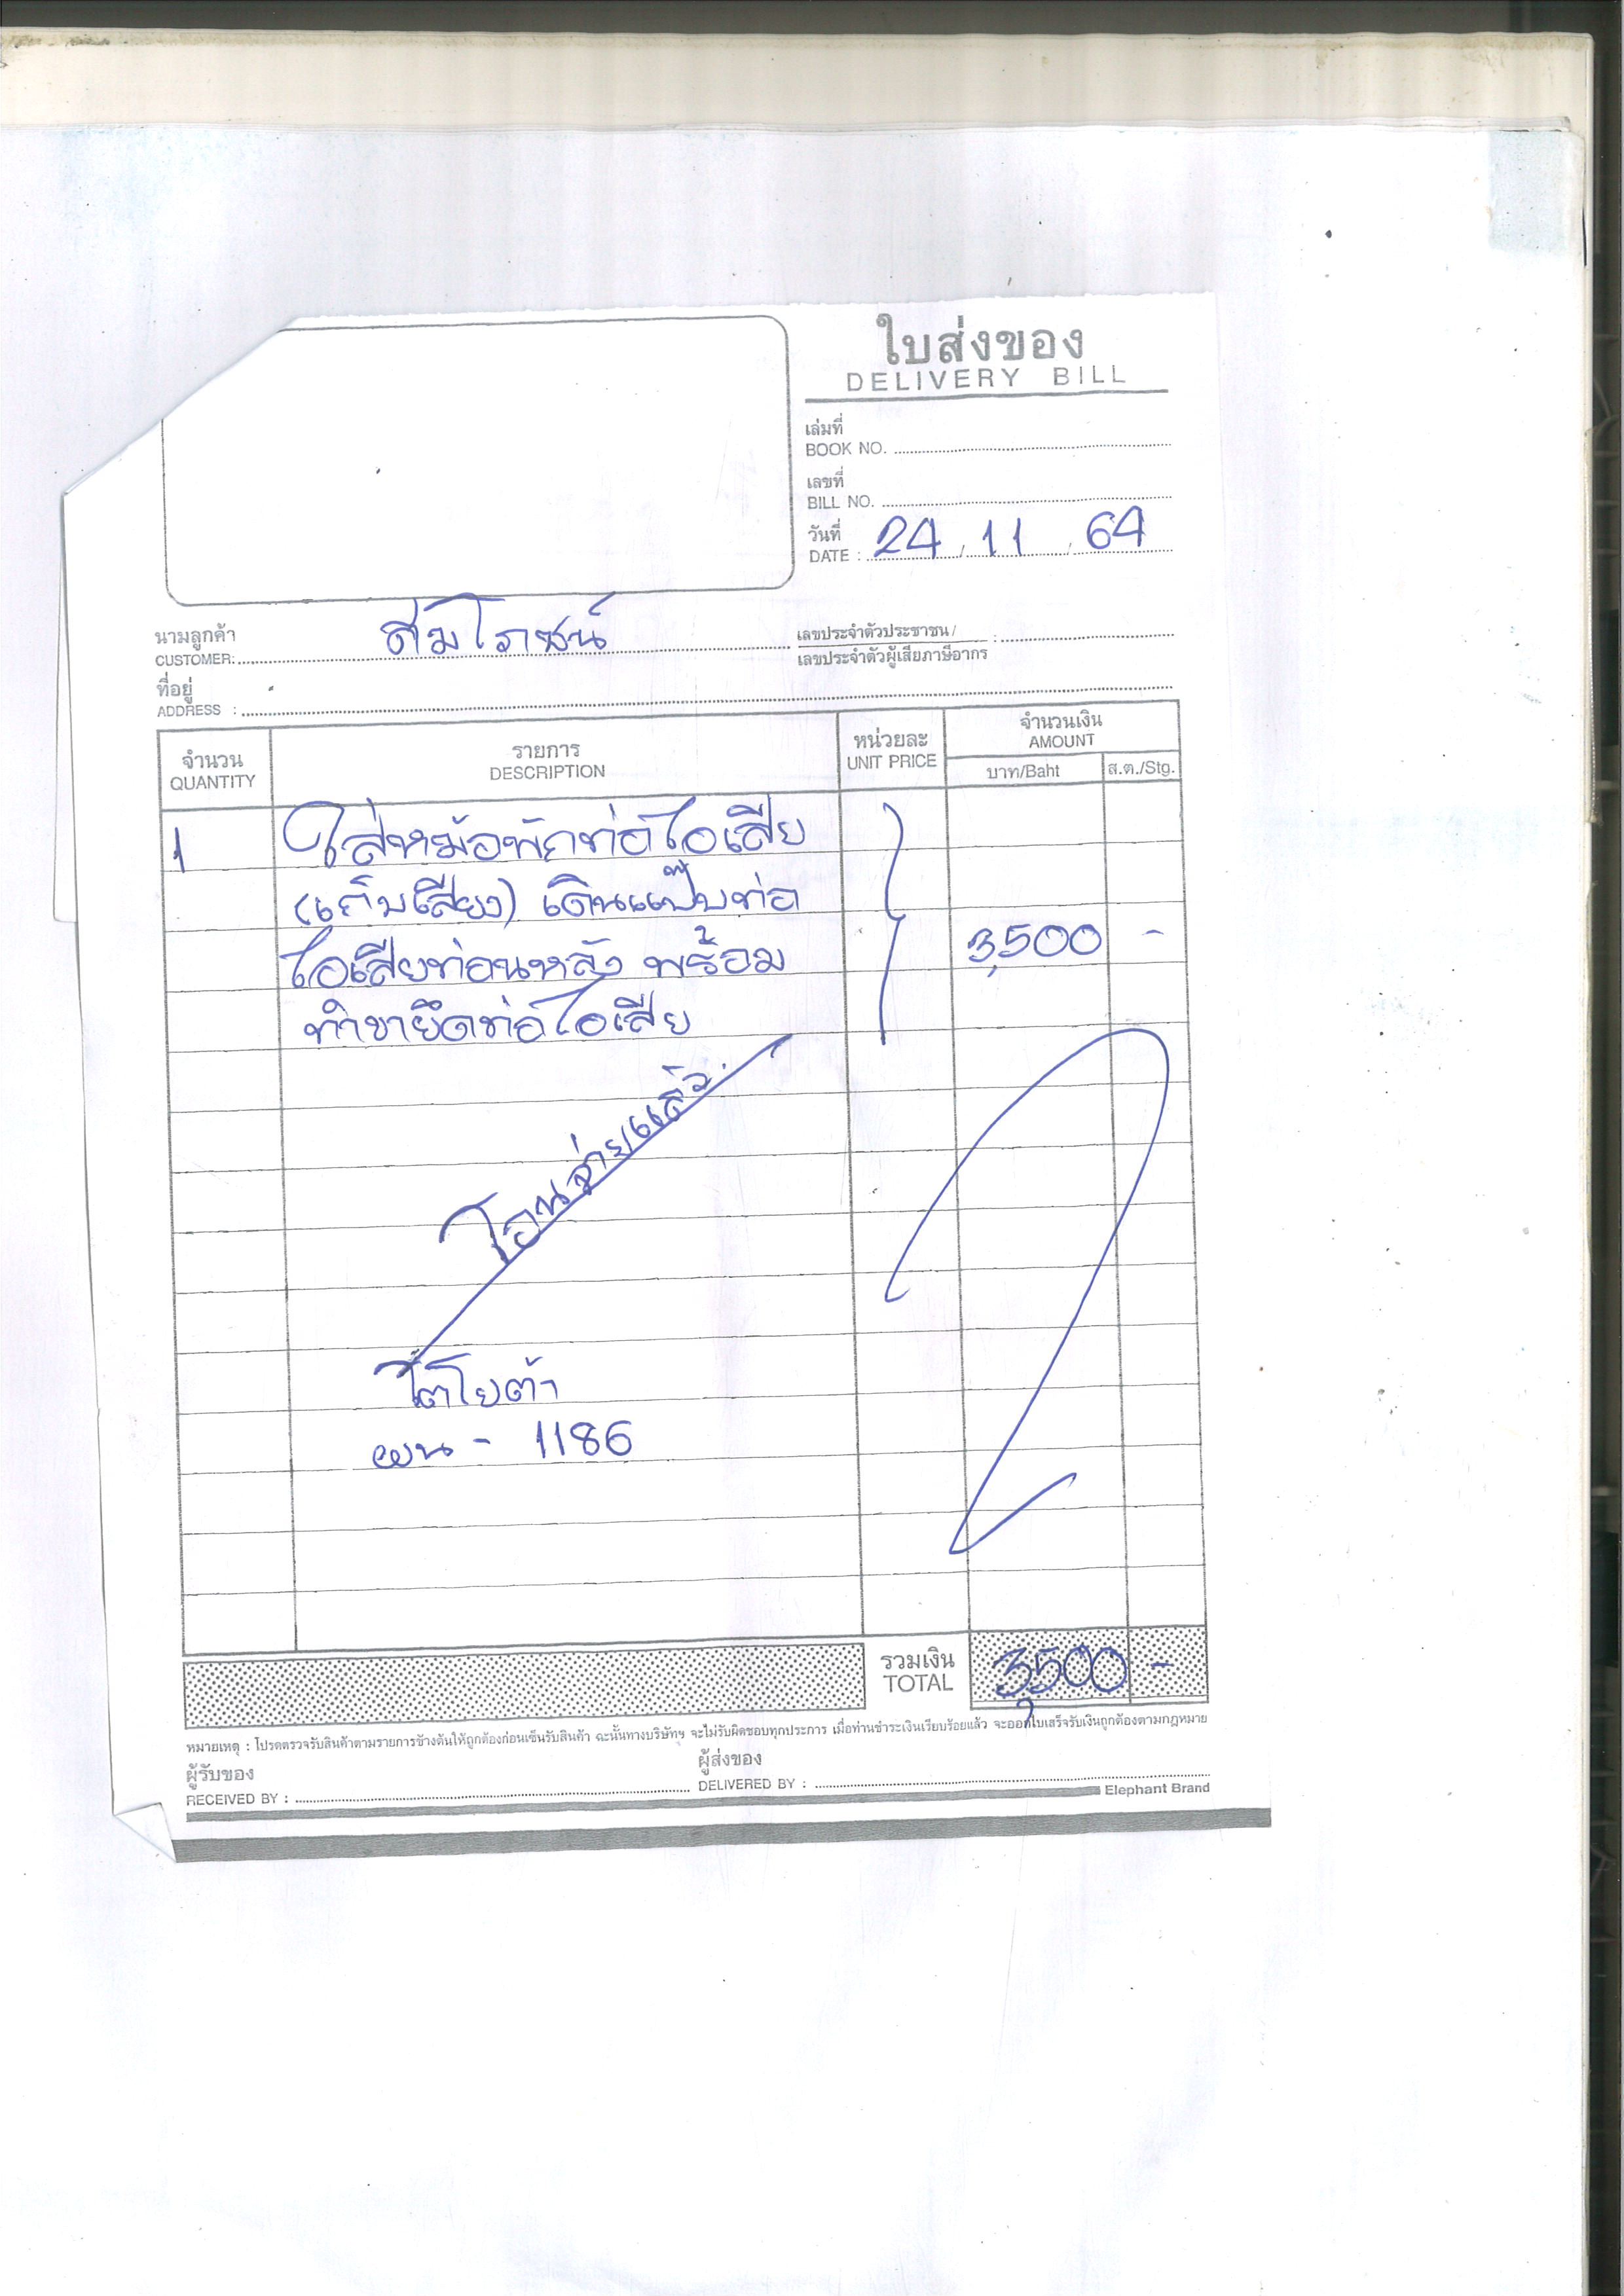 ใบส่งของ
DELIVERY BILL
เล่มที่
BOOK NO.
เลขที่
BILL NO.
วันที่
DATE : 24 , 11 , 64
นามลูกค้า
CUSTOMER:
เลขประจำตัวประชาชน/ :
เลขประจำตัวผู้เสียภาษีอากร
ที่อยู่
ADDRESS :
จำนวน
QUANTITY
รายการ
DESCRIPTION
หน่วยละ
UNIT PRICE
จำนวนเงิน
AMOUNT
บาท/Baht
ส.ต./Stg.
1 ใส่หม้อพักท่อไอเสีย
(เก็บเสียง) เดินแป๊บท่อ
ไอเสียท่อนหลัง พร้อม 3,500 -
ทำขายึดท่อไอเสีย
โอนจ่ายแล้ว
โตโยต้า
ผน - 1186
รวมเงิน
TOTAL
3,500 -
หมายเหตุ : โปรดตรวจรับสินค้าตามรายการข้างต้นให้ถูกต้องก่อนเซ็นรับสินค้า ฉะนั้นทางบริษัทฯ จะไม่รับผิดชอบทุกประการ เมื่อท่านชำระเงินเรียบร้อยแล้ว จะออกใบเสร็จรับเงินถูกต้องตามกฎหมาย
ผู้รับของ
RECEIVED BY :
ผู้ส่งของ
DELIVERED BY :
Elephant Brand